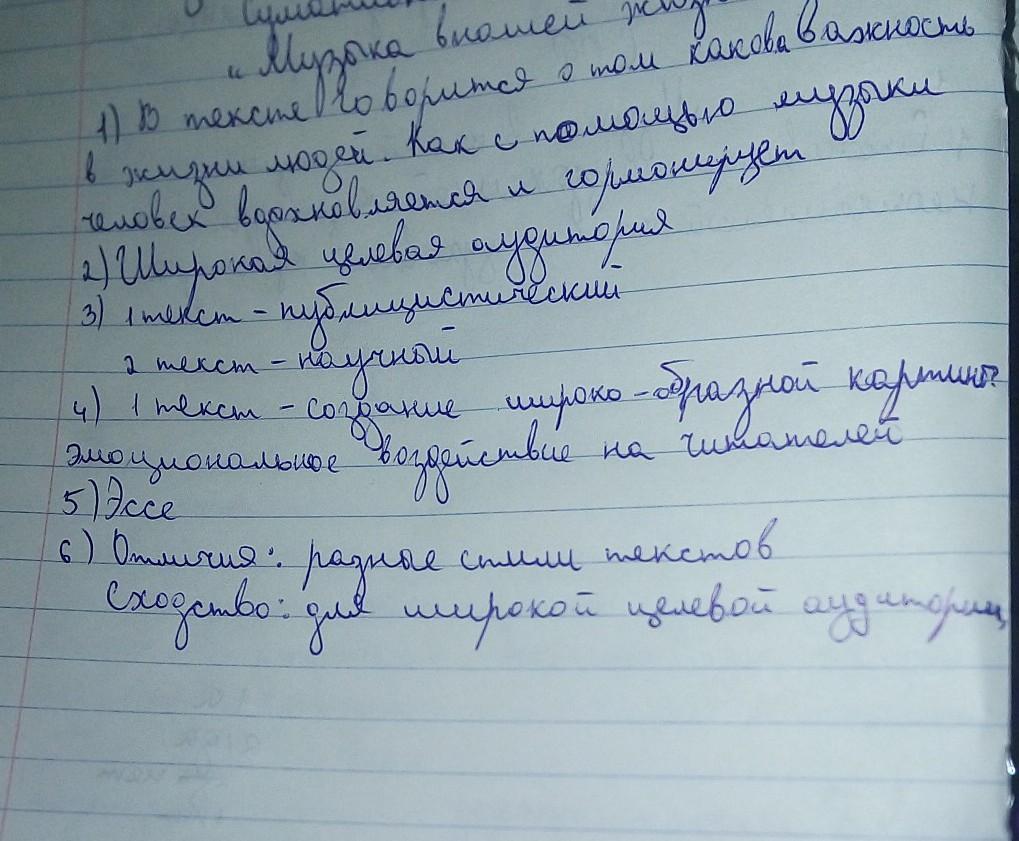 „Музыка в нашей
1) В тексте говорится о том какова важность
в жизни людей. Как с помощью музыки
человек вдохновляется и гормонирует
2) Широкая целевая аудитория
3) 1 текст - публицистический
2 текст - научный
4) 1 текст - создание широко-образной картины?
эмоциональное воздействие на читателей
5) Эссе
6) Отличия: разные стили текстов
Сходство: для широкой целевой аудитории,